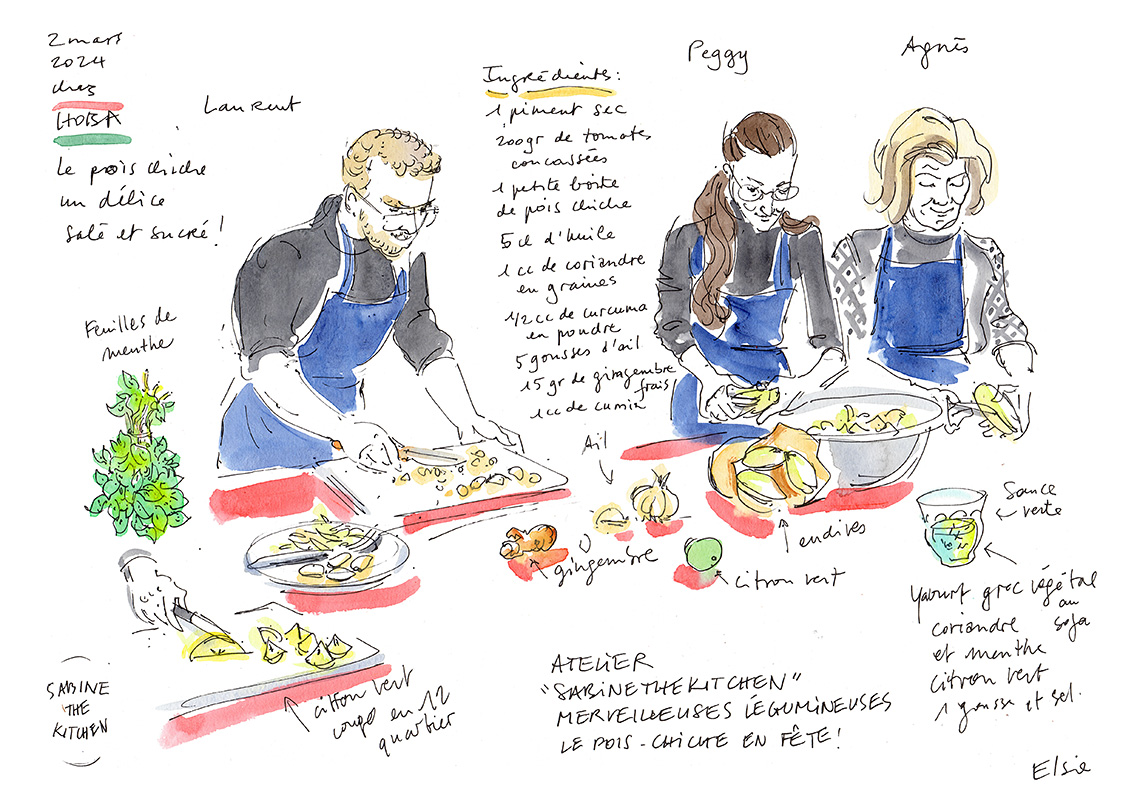 2 mars
2024
chez
HOBA
Le pois chiche
un délice
salé et sucré !
Laurent
Feuilles de
menthe
Ingrédients :
1 piment sec
200gr de tomates
concassées
1 petite boîte
de pois chiche
5 cl d'huile
1 cc de coriandre
en graines
1/2 cc de curcuma
en poudre
5 gousses d'ail
15 gr de gingembre
frais
1 cc de cumin
Peggy
Agnès
Ail
gingembre
citron vert
endives
Sauce
verte
Yaourt grec végétal
au
soja
coriandre
et menthe
citron vert
1 gousse et sel.
citron vert
coupé en 12
quartier
SABINE
THE
KITCHEN
ATELIER
"SABINETHEKITCHEN"
MERVEILLEUSES LÉGUMINEUSES
LE POIS-CHICHE EN FÊTE !
Elsie